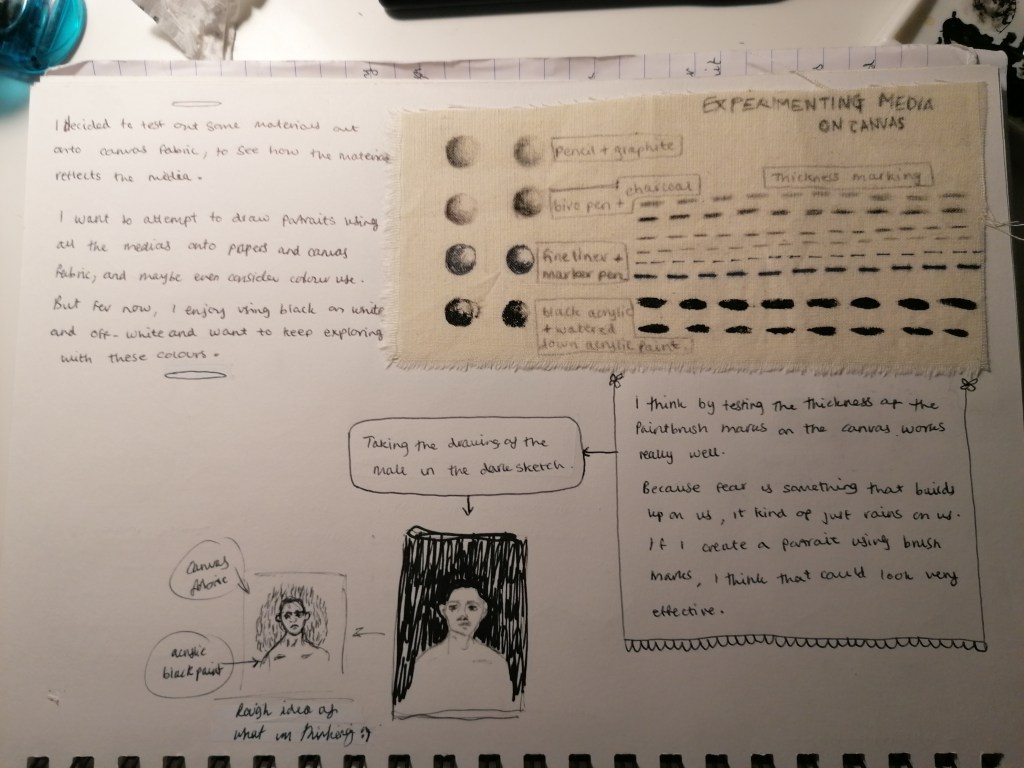 I decided to test out some materials out
onto canvas fabric, to see how the material
reflects the media.
I want to attempt to draw portraits using
all the medias onto papers and canvas
fabric, and maybe even consider colour use.
But for now, I enjoy using black on white
and off-white and want to keep exploring
with these colours.
EXPERIMENTING MEDIA
ON CANVAS
pencil + graphite
charcoal
biro pen +
fineliner +
marker pen
black acrylic
+ watered
down acrylic paint.
Thickness marking
I think by testing the thickness of the
paintbrush marks on the canvas works
really well.
Because fear is something that builds
up on us, it kind of just rains on us.
If I create a portrait using brush
marks, I think that could look very
effective.
Taking the drawing of the
male in the dark sketch.
canvas
fabric
acrylic
black paint
Rough idea of
what im thinking :)